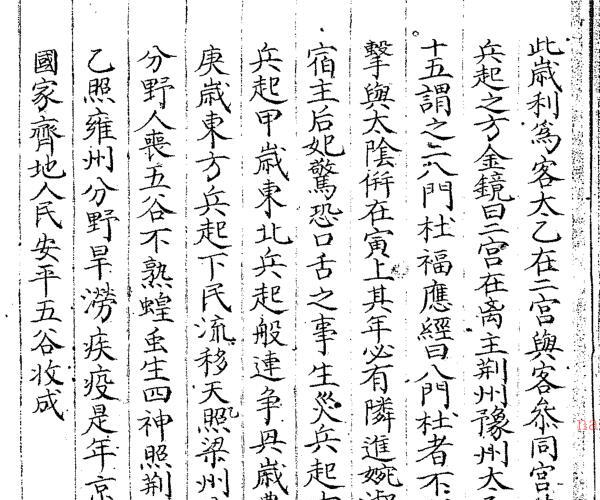 此歲利為客太乙在二宮與客叅同宮
兵起之方金鏡曰二宮在离主荆州豫州太
十五謂之二八門杜福應經曰八門杜者不
擊與太陰併在寅上其年必有隣進婉
宿主后妃驚恐口舌之事生災兵起
兵起甲歲東北兵起般連争其歲
庚歲東方兵起下民流移天乙照梁州
分野人喪五谷不熟蝗虫生四神照荆
乙照雍州分野旱澇疾疫是年京
國家齊地人民安平五谷收成
na